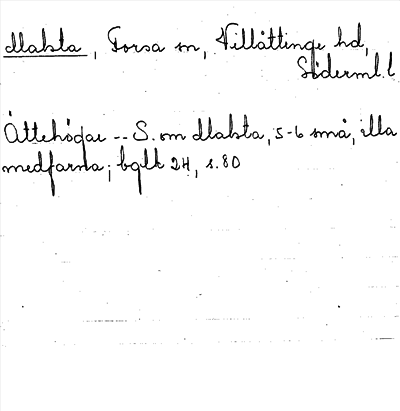 Malsta, Forsa sn, Villåttinge hd,
Söderml. l
Ättehögar -- S. om Malsta, 5-6 små, illa
medfarna; 24, s.80